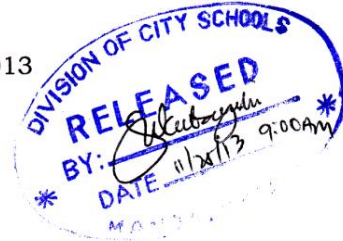 013
DIVISION OF CITY SCHOOLS
RELEASED
BY:
DATE 9:00AM